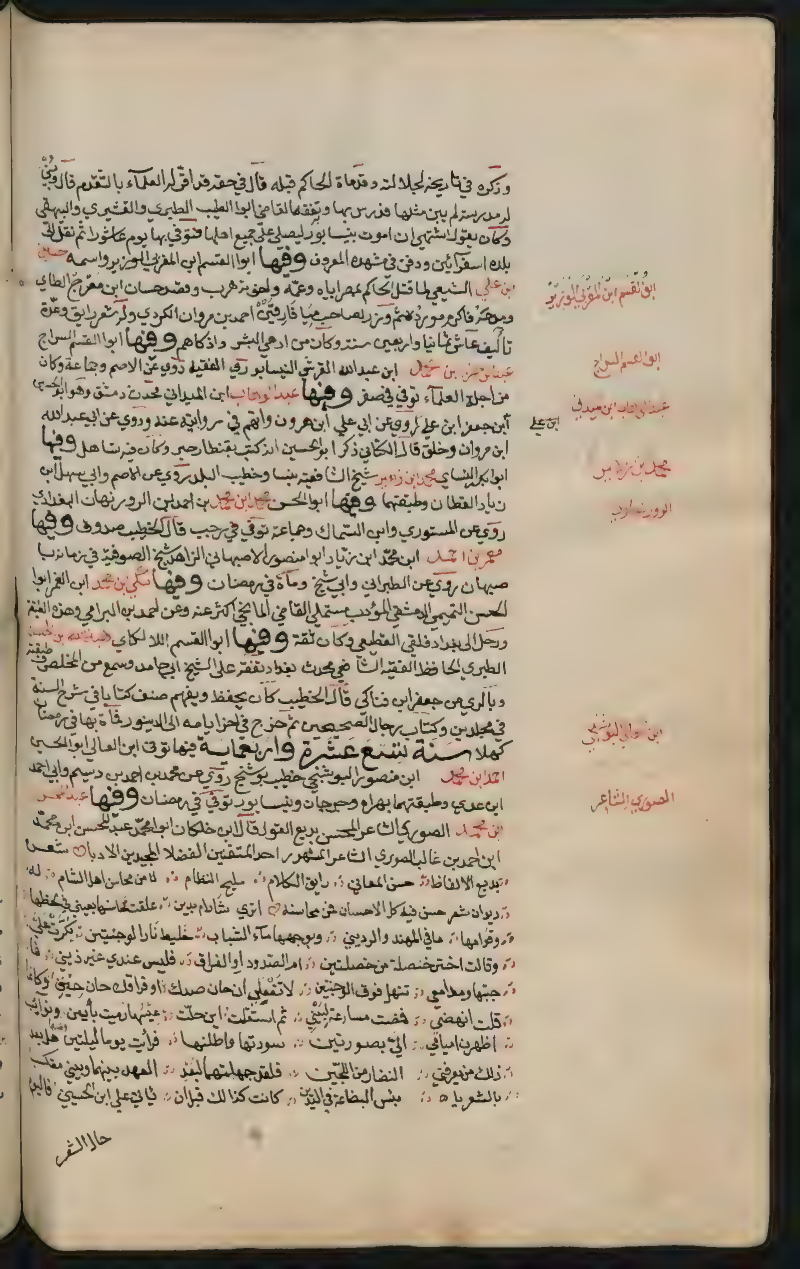 وذكره في تاريخه لجلالته وقد مات الحاكم قبله قال في حقه قد اقر له العلماء بالتقدم قال وبني
له مدرسة لم يبن مثلها فدرس بها وتفقه القاضي ابوا الطيب الطبري والقشيري والبيهقي
وكان يقول اشتهي ان اموت بنيسابور ليصلي علي جميع اهلها فتوفي بها يوم عاشورا ثم نقل الى
بلده اسفرائين ودفن في مشهده المعروف وفيها ابوا القسم ابن المغربي الوزير واسمه حسين
ابن علي الشيعي لما قتل الحاكم بمصر اباه وعمه واخوته هرب وقصد حسان ابن مفرج الطاي
ومدحه فاكرم مورده ثم وزر لصاحب ميا فارقين احمد بن مروان الكردي وله شعر رايق وعدة
تآليف عاش ثمانيا واربعين سنة وكان من ادهي البشر واذكاهم وفيها ابوا القسم السراج
عبد الرحمن بن محمد ابن عبد الله القرشي النيسابوري الفقيه روي عن الاصم وجماعة وكان
من اجلة العلماء توفي في صفر وفيها عبد الوهاب ابن الميداني محدث دمشق وهو ابو الحسين
ابن جعفر ابن علي روي عن ابي علي ابن هرون واتهم في روايته عنه وروي عن ابي عبد الله
ابن مروان وخلق قال الكتاني ذكر ابو الحسين انه كتب بقنطار حبر وكان فيه تساهل وفيها
ابوا بكر النساي محمد ابن زهير شيخ الشافعية بنسا وخطيب البلد روي عن الاصم وابي سهل ابن
زياد القطان وطبقتهما وفيها ابوا الحسن محمد ابن محمد بن احمد بن الروزبهان البغدادي
روي عن الستوري وابن السماك وجماعة توفي في رجب قال الخطيب صدوق وفيها
معمر بن احمد ابن محمد ابن زياد ابوا منصور الاصبهاني الزاهد شيخ الصوفية في زمانه با
صبهان روي عن الطبراني وابي شيخ ومات في رمضان وفيها مكي بن محمد ابن الغمر ابوا
الحسن التميمي الدمشقي المؤدب مستملي القاضي الميانجي اكثر عنه وعن احمد بن البرامي وهذه الطبقة
ورحل الى بغداد فلقي القطيعي وكان ثقة وفيها ابوا القسم اللالكاي هبة الله بن الحسن
الطبري الحافظ الفقيه الشافعي محدث بغداد تفقه على الشيخ ابي حامد وسمع من المخلص وطبقته
وبالري من جعفر ابن فناكي قال الخطيب كان يحفظ ويفهم صنف كتابا في شرح السنة
في مجلدين وكتاب رجال الصحيحين ثم خرج في اخر ايامه الى الدينور فمات بها في رمضان
كهلا سنة تسع عشرة واربعماية فيها توفي ابن العالي ابو الحسين
احمد ابن محمد ابن منصور البوشنجي خطيب بوشنج روي عن محمد بن احمد بن دسيم وابي احمد
ابن عدي وطبقتهما بهراة وجرجان ونيسابور توفي في رمضان وفيها عبد المحسن
ابن محمد الصوري الشاعر المحسن بديع القول قال ابن خلكان ابوا محمد عبد المحسن ابن محمد
ابن احمد بن غالب الصوري الشاعر المشهور احد المتقنين الفضلا المجيدين الادبا شعره
بديع الالفاظ حسن المعاني رايق الكلام مليح النظام من محاسن اهل الشام له
ديوان شعر حسن فيه كل الاحسان فمن محاسنه اتري بثار ام بدين علقت محاسنها بعيني في لحظها
وقوامها ما في المهند والرديني وبوجهها ماء الشباب خليط نار الوجنتين بكرت علي
وقالت اختر خصلة من خصلتين اما الصدود او الفراق فليس عندي غير ذيني فا
جبتها ومدامعي تنهل فوق الوجنتين لا تفعلي ان حان صدك او فراقك حان حيني وكانما
قلت انهضي فمضت مسارعة لبيني ثم استقلت اين حلت عيسها رميت باين ونوائب
اظهرن ايامي الي بصورتين سودتها واطلنها فرايت يوما ليلتين هل بعد
ذلك من يعرفني النضار من اللجين فلقد جهلتهما لبعد العهد بينهما وبيني متكسبا
بالشعر يا بئس البضاعة في اليدين كانت كذلك قبل ان ياتي علي ابن الحسيني فاليوم
حال الشعر
ابو القسم ابن المغربي الوزير
ابو القسم السراج
عبد الوهاب ابن ميداني
ابن علي
محمد بن زهير
الروزبهان
ابن العالي البوشنجي
الصوري الشاعر